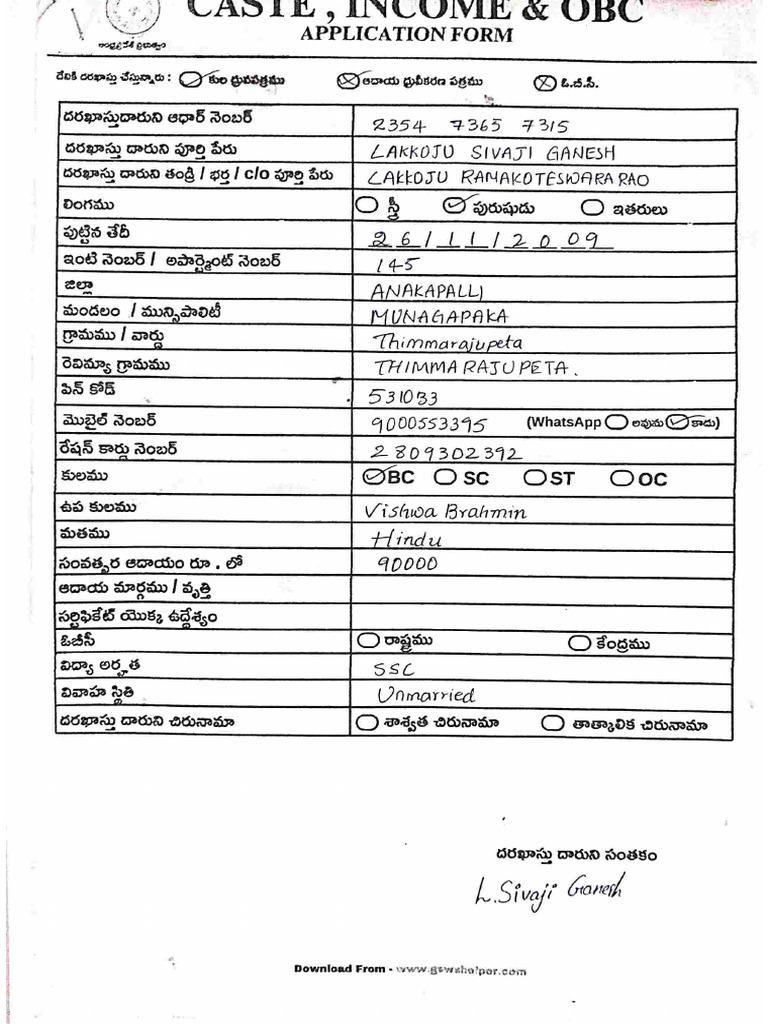 CASTE , INCOME & OBC
APPLICATION FORM
ఆంధ్రప్రదేశ్ ప్రభుత్వం
దేనికి దరఖాస్తు చేస్తున్నారు : కుల ధ్రువపత్రము ఆదాయ ధ్రువీకరణ పత్రము ఓ.బి.సీ.
దరఖాస్తుదారుని ఆధార్ నెంబర్ 2354 7365 7315
దరఖాస్తు దారుని పూర్తి పేరు LAKKOJU SIVAJI GANESH
దరఖాస్తు దారుని తండ్రి / భర్త / c/o పూర్తి పేరు LAKKOJU RAMAKOTESWARA RAO
లింగము స్త్రీ పురుషుడు ఇతరులు
పుట్టిన తేదీ 26/11/2009
ఇంటి నెంబర్ / అపార్ట్మెంట్ నెంబర్ 145
జిల్లా ANAKAPALLI
మండలం / మున్సిపాలిటీ MUNAGAPAKA
గ్రామము / వార్డు Thimmarajupeta
రెవిన్యూ గ్రామము THIMMARAJUPETA.
పిన్ కోడ్ 531033
మొబైల్ నెంబర్ 9000553395 (WhatsApp అవును కాదు)
రేషన్ కార్డు నెంబర్ 2809302392
కులము BC SC ST OC
ఉప కులము Vishwa Brahmin
మతము Hindu
సంవత్సర ఆదాయం రూ . లో 90000
ఆదాయ మార్గము / వృత్తి
సర్టిఫికేట్ యొక్క ఉద్దేశ్యం
ఓబీసీ రాష్ట్రము కేంద్రము
విద్యా అర్హత SSC
వివాహ స్థితి Unmarried
దరఖాస్తు దారుని చిరునామా శాశ్వత చిరునామా తాత్కాలిక చిరునామా
దరఖాస్తు దారుని సంతకం
L. Sivaji Ganesh
Download From - www.gswshelper.com